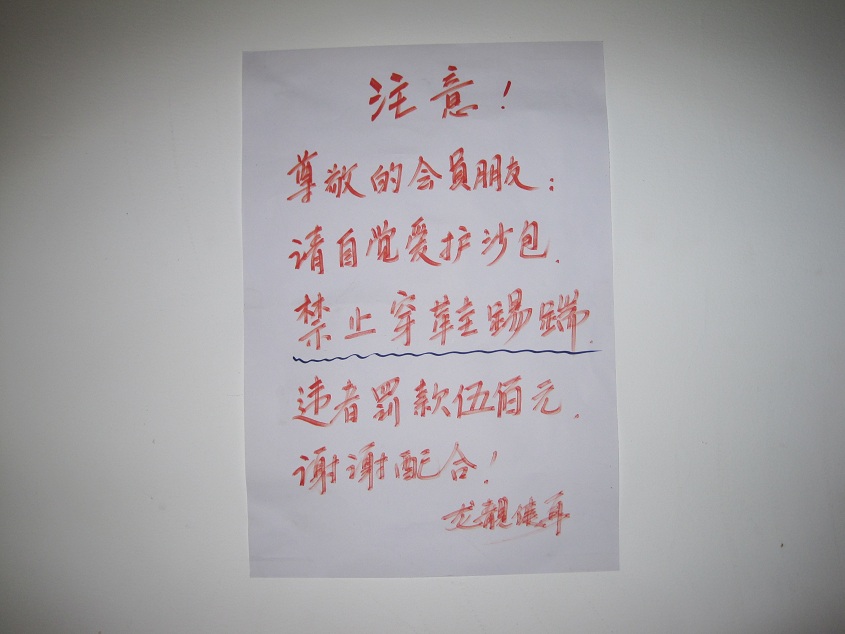 注意!
尊敬的会员朋友:
请自觉爱护沙包.
禁止穿鞋踢踹.
违者罚款伍佰元.
谢谢配合!